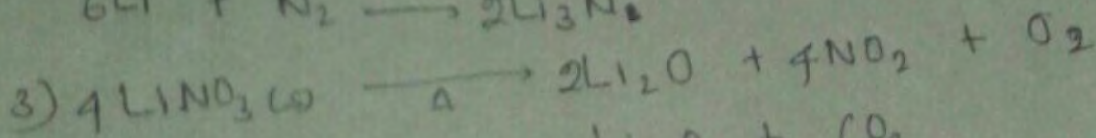 6Li + N₂ ⟶ 2Li₃N.
3) 4 LiNO₃(s) ⟶ Δ 2Li₂O + 4NO₂ + O₂
CO₂